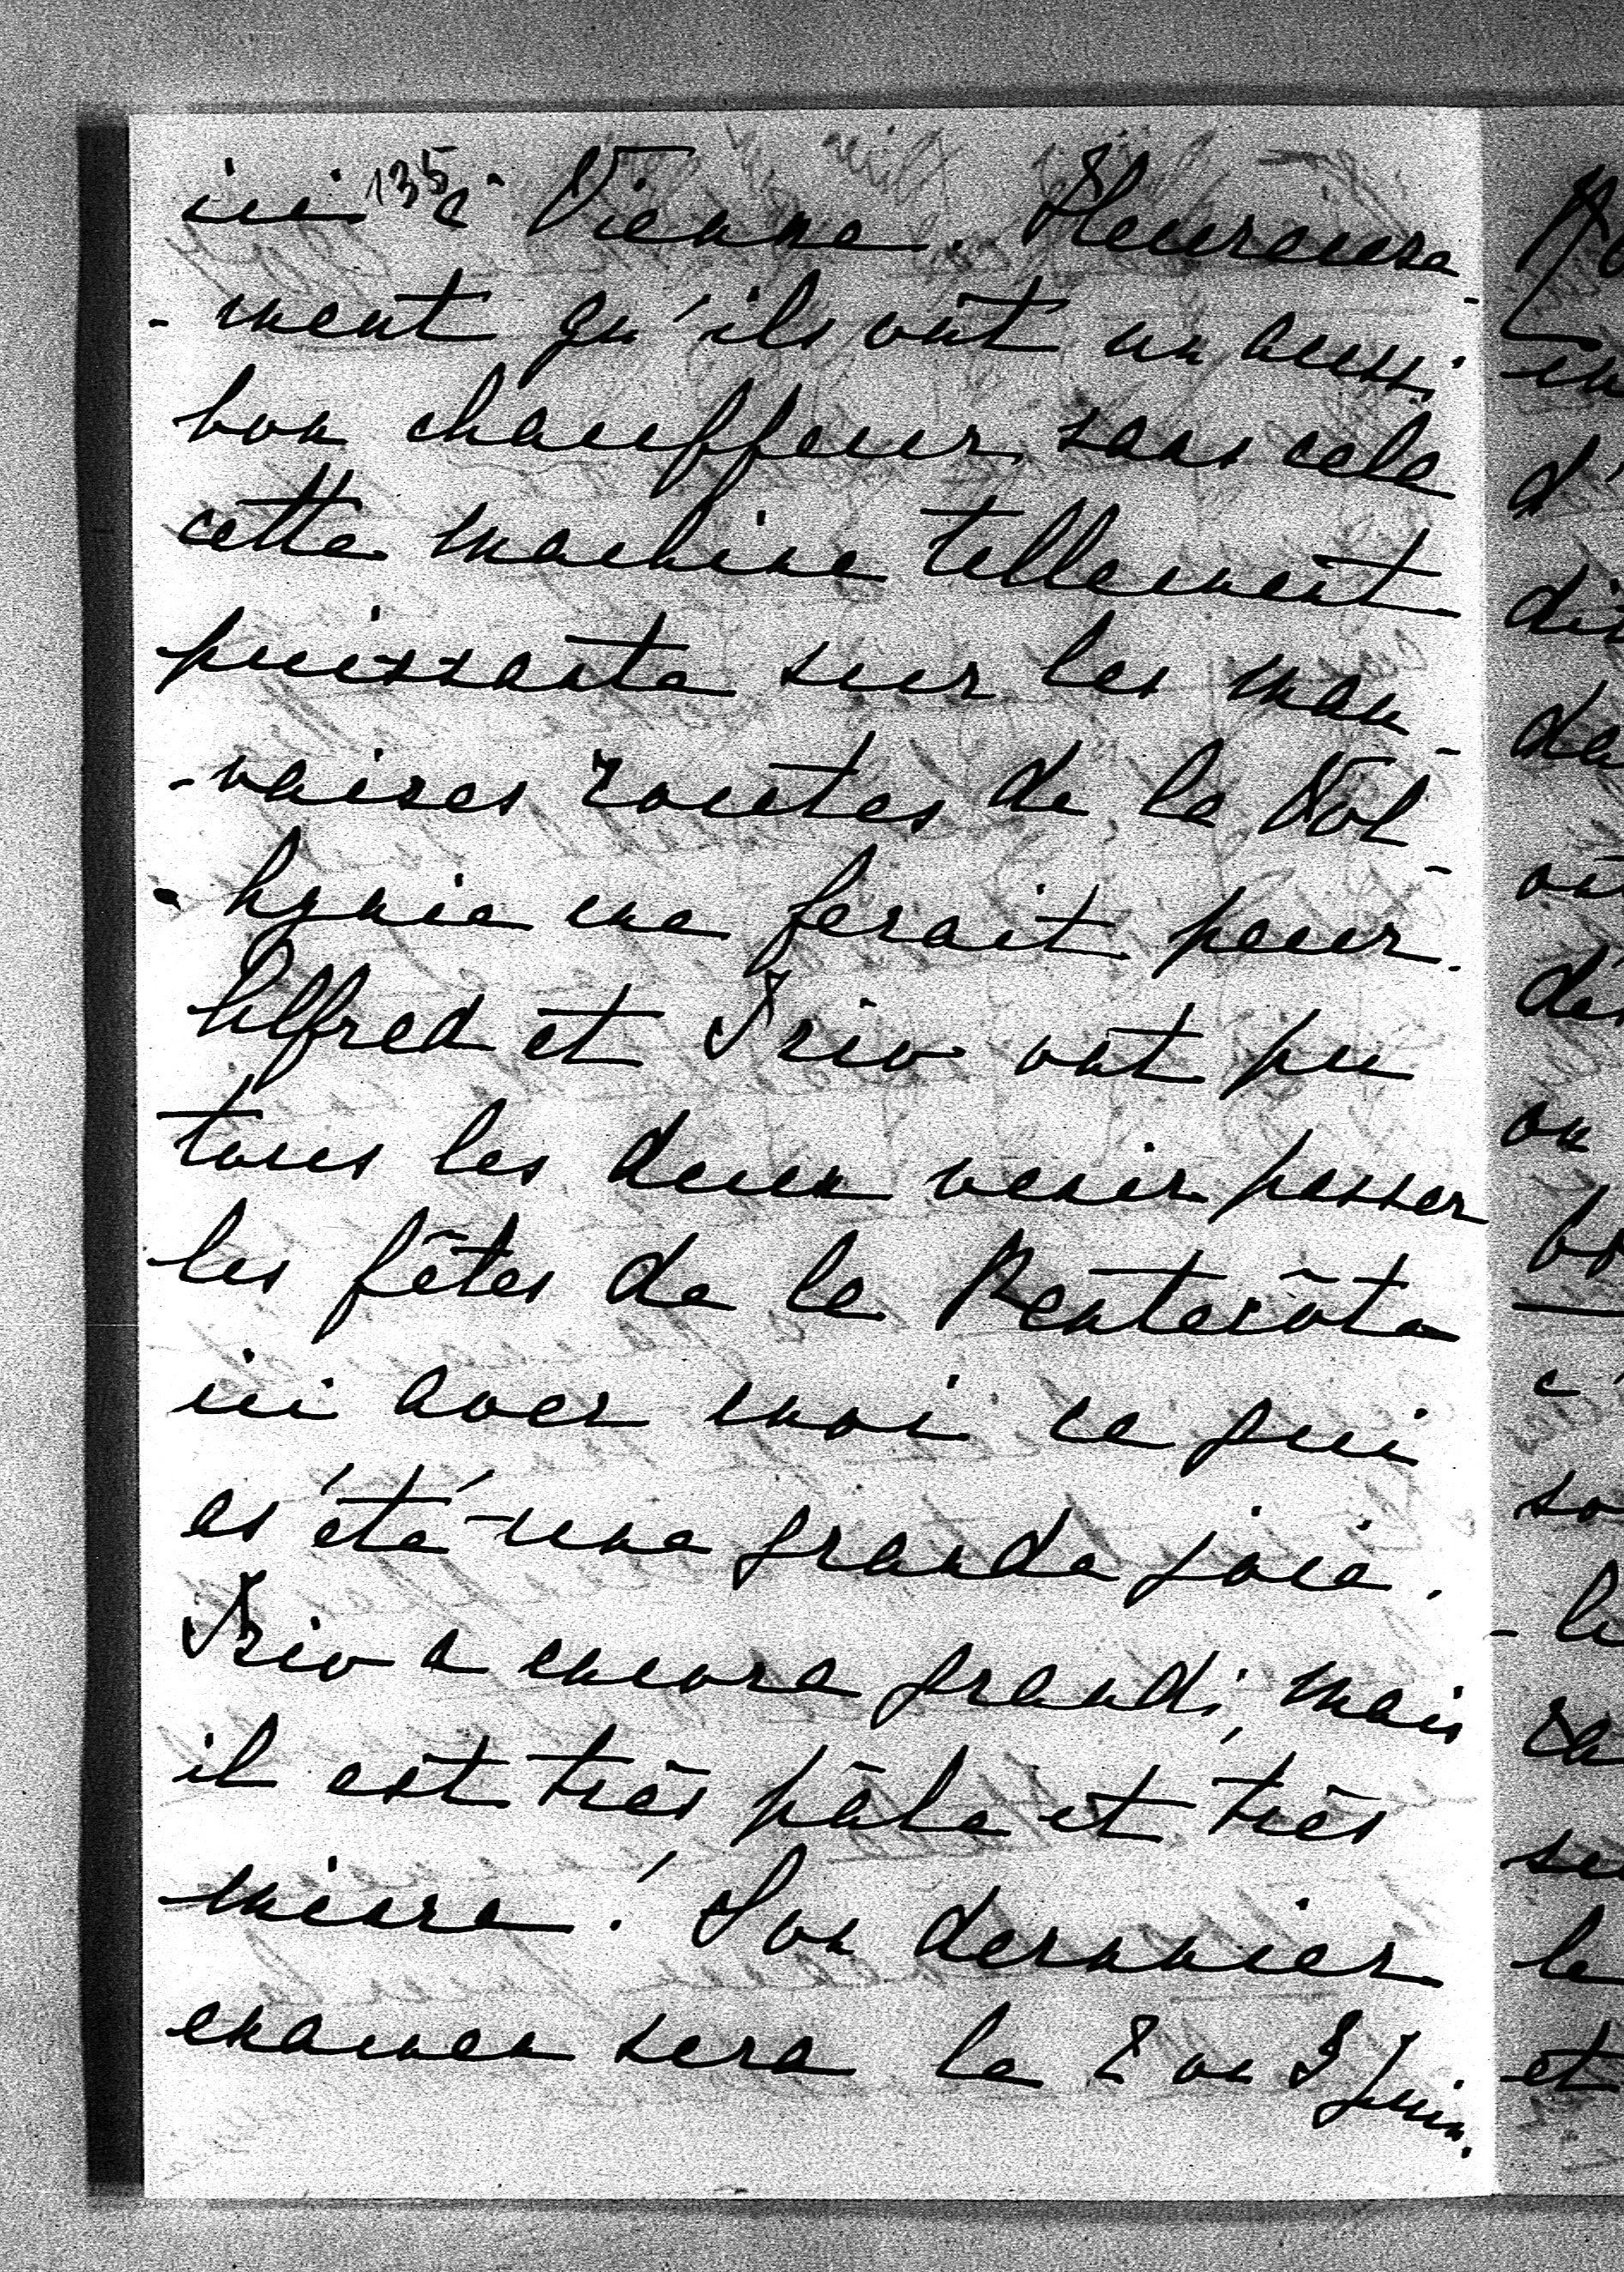 ici 135 à Vienne. Heureuse-
-ment qu'ils ont un aussi
bon chauffeur, sans cela
cette machine tellement
puissante sur les mau-
-vaises routes de la Vol-
-hynie me ferait peur.
Alfred et Friv ont pu
tous les deux venir passer
les fêtes de la Pentecôte
ici avec moi ce qui
as été une grande joie.
Friv a encore grandi, mais
il est très pâle et très
mince! Son dernier
examen sera le 2 ou 3 Juin.